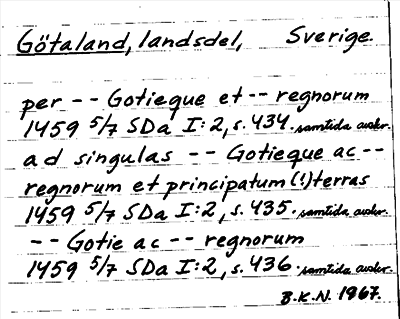 Götaland, landsdel, Sverige.
per -- Gotieque et -- regnorum
1459 5/7 SDa I:2, s. 434. samtida avskr.
ad singulas -- Gotieque ac --
regnorum et principatum (!) terras
1459 5/7 SDa I:2, s. 435. samtida avskr.
-- Gotie ac -- regnorum
1459 5/7 SDa I:2, s. 436. samtida avskr.
B.K.N. 1967.